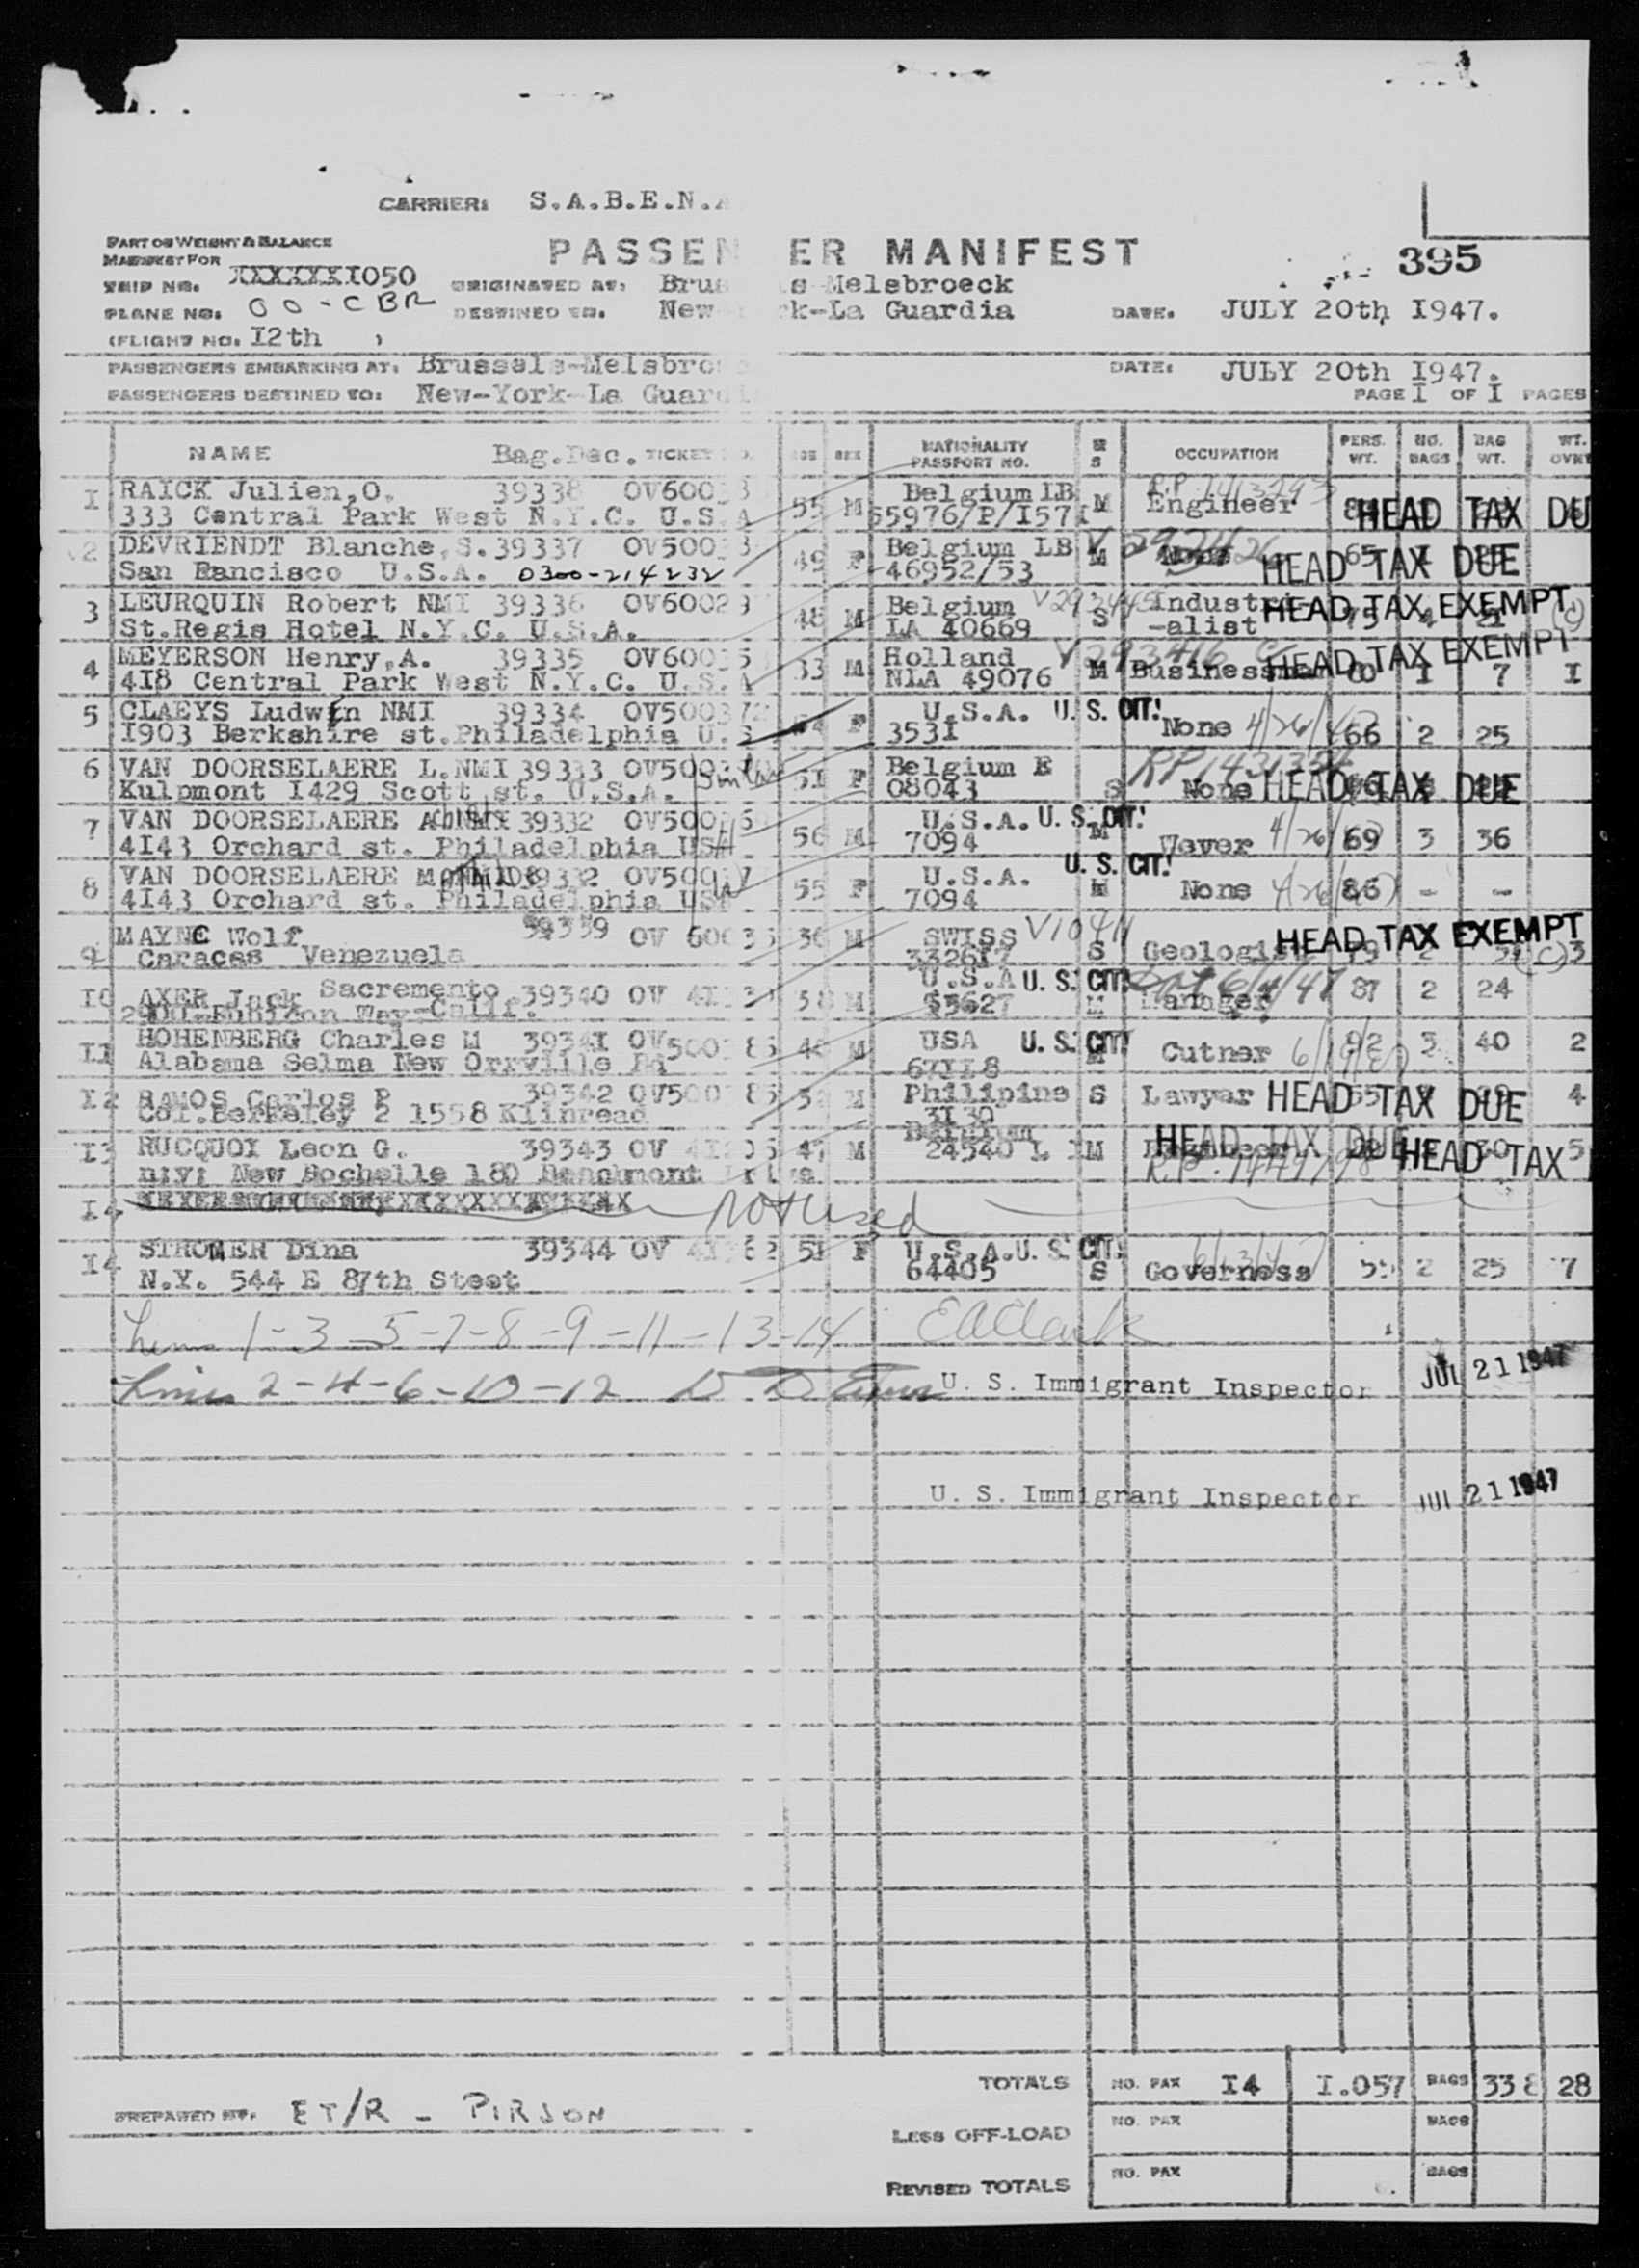 CARRIER: S.A.B.E.N.A
PART OF WEIGHT & BALANCE
MANIFEST FOR
PASSEN ER MANIFEST
395
TRIP NO. XXXXXXI050
ORIGINATED AT: Brus s-Melsbroeck
PLANE NO: OO-CBR
DESTINED TO. New k-La Guardia
DATE. JULY 20th I947.
(FLIGHT NO. I2th )
PASSENGERS EMBARKING AT: Brussels-Melsbro
DATE: JULY 20th I947.
PASSENGERS DESTINED TO: New-York-La Guardi
PAGE I OF I PAGES
NAME Bag.Dec. TICKET NO. AGE SEX NATIONALITY PASSPORT NO. M S OCCUPATION PERS. WT. NO. BAGS BAG WT. WT. OVNT
I RAICK Julien,O. 39338 OV600 3 55 M Belgium LB M Engineer HEAD TAX DU
333 Central Park West N.Y.C. U.S.A 55976/P/I57
2 DEVRIENDT Blanche,S. 39337 OV500 49 F Belgium LB M 65 HEAD TAX DUE
San Rancisco U.S.A. 0300-214232 46952/53
3 LEURQUIN Robert NMI 39336 OV6002 48 M Belgium S Industri HEAD TAX EXEMPT (c)
St.Regis Hotel N.Y.C. U.S.A. LA 40669 -alist 75 4 21
4 MEYERSON Henry,A. 39335 OV600 5 33 M Holland V293416 HEAD TAX EXEMPT
418 Central Park West N.Y.C. U.S.A NLA 49076 M Business 80 1 7 I
5 CLAEYS Ludwin NMI 39334 OV50037 F U.S.A. U. S. CIT. None 4/26/
I903 Berkshire st.Philadelphia U.S 353I 66 2 25
6 VAN DOORSELAERE L.NMI 39333 OV500 51 F Belgium E RP1431354
Kulpmont I429 Scott st. U.S.A. 08043 S None HEAD TAX DUE
7 VAN DOORSELAERE A NMI 39332 OV500 6 56 M U.S.A. U. S. CIT. M
4I43 Orchard st. Philadelphia USA 7094 Wever 4/26/ 69 3 36
8 VAN DOORSELAERE M 39332 OV500 7 55 F U.S.A. U. S. CIT. M None 86 - -
4I43 Orchard st. Philadelphia USA 7094
9 MAYNC Wolf 39339 OV 600 35 36 M SWISS V10411 HEAD TAX EXEMPT
Caracas Venezuela 332617 S Geologist 79 2 (c) 3
I0 AXER Jack Sacremento 39340 OV 58 M U.S.A U. S. CIT. 6/4/47 87 2 24
Rubicon Way-Calif. 53627 M Manager
II HOHENBERG Charles M 3934I OV500 85 M USA U. S. CIT. Cutner 92 3 40 2
Alabama Selma New Orrville Rd 67II8
I2 RAMOS Carlos P 39342 OV500 85 M Philipine S Lawyar HEAD TAX DUE 4
Col.Berkeley 2 1558 Klinread 3I30
I3 RUCQUOI Leon G. 39343 OV 47 M Belgium 24540 L M HEAD TAX DUE HEAD TAX 5
New Rochelle 180 Beachmont
I4 not used
I4 STROMER Dina 39344 OV 51 F U.S.A. U. S. CIT.
N.Y. 544 E 87th Steet 64405 S Governess 55 2 25 7
Lines 1-3-5-7-8-9-11-13-14 EAClark
Lines 2-4-6-10-12 U. S. Immigrant Inspector JUL 21 1947
U. S. Immigrant Inspector JUL 21 1947
TOTALS NO. PAX I4 I.057 BAGS 338 28
PREPARED BY. ET/R - PIRSON
LESS OFF-LOAD NO. PAX BAGS
REVISED TOTALS NO. PAX BAGS